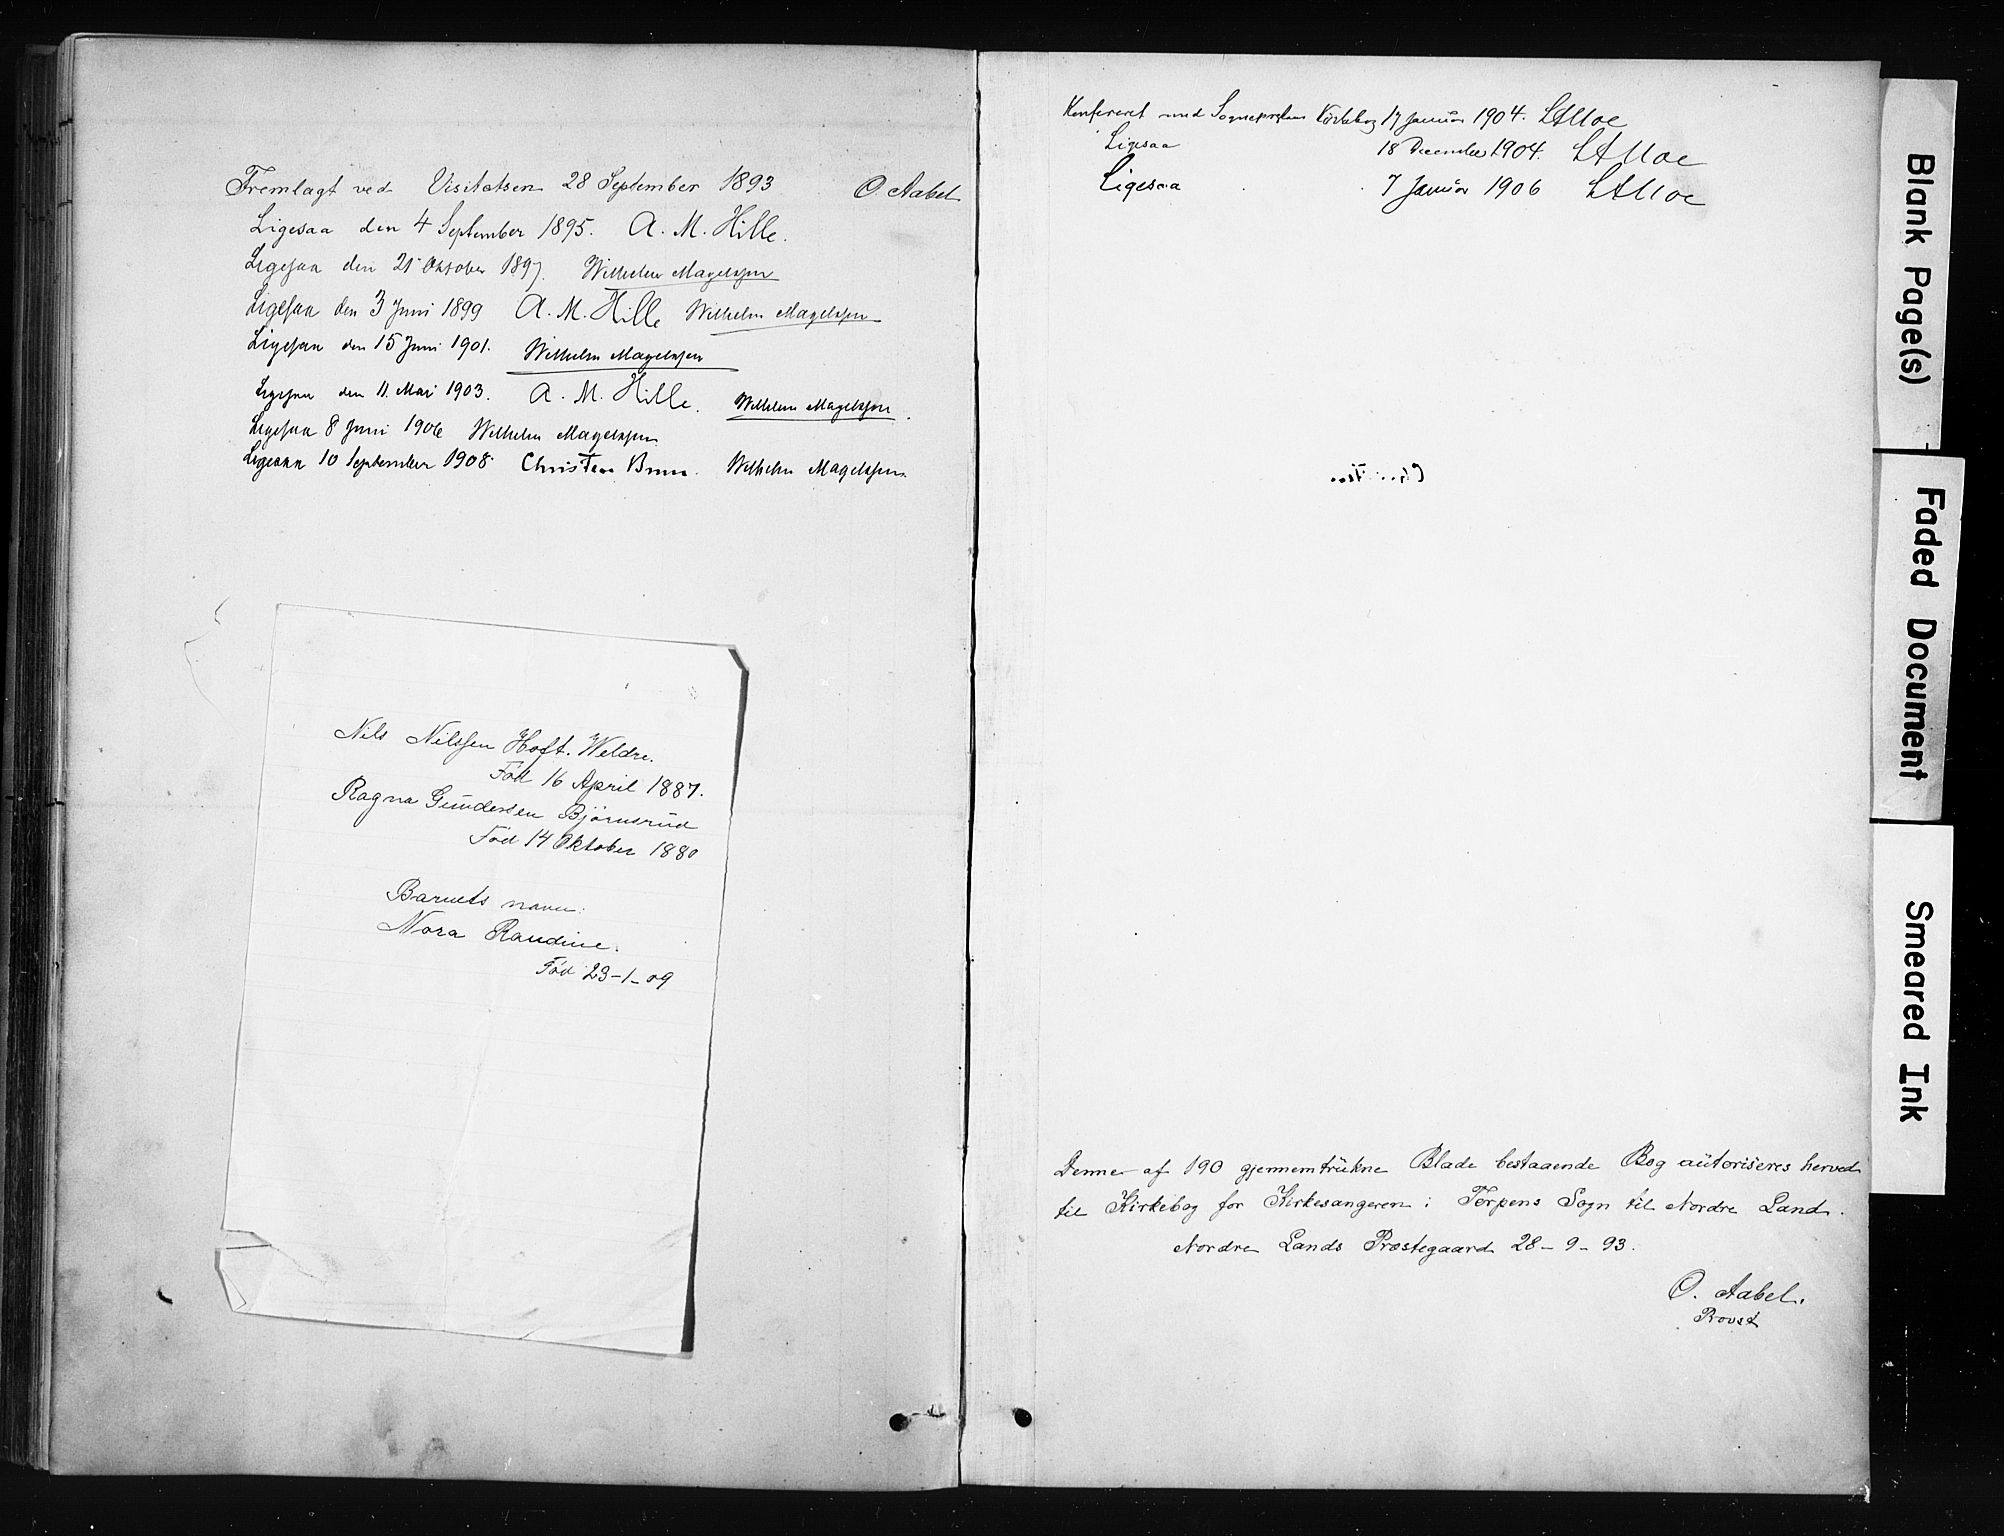 Fremlagt ved Visitatsen 28 September 1893 O. Aabel
Ligesaa den 4 September 1895. A. M. Hille.
Ligesaa den 21 Oktober 1897. Wilhelm Magelssen
Ligesaa den 3 Juni 1899 A. M. Hille Wilhelm Magelssen
Ligesaa den 15 Juni 1901. Wilhelm Magelssen
Ligesaa den 11. Mai 1903. A. M. Hille. Wilhelm Magelssen.
Ligesaa 8 Juni 1906 Wilhelm Magelssen
Ligesaa 10 September 1908. Christen Brun. Wilhelm Magelssen
Nils Nilssen Hoft. Weldre.
Fød 16 April 1887.
Ragna Gundersen Bjørnsrud
Fød 14 Oktober 1880
Barnets navn:
Nora Randine.
Fød 23-1-09
Konfereret med Sogneprestens Kirkebog 17 Januar 1904. LAMoe
Ligesaa 18 December 1904. LAMoe
Ligesaa 7 Januar 1906 LAMoe
Denne af 190 gjennemtrukne Blade bestaaende Bog autoriseres herved
til Kirkebog for Kirkesangeren i Torpens Sogn til Nordre Land.
Nordre Lands Præstegaard 28-9-93.
O. Aabel.
Provst
Blank Page(s)
Faded Document
Smeared Ink